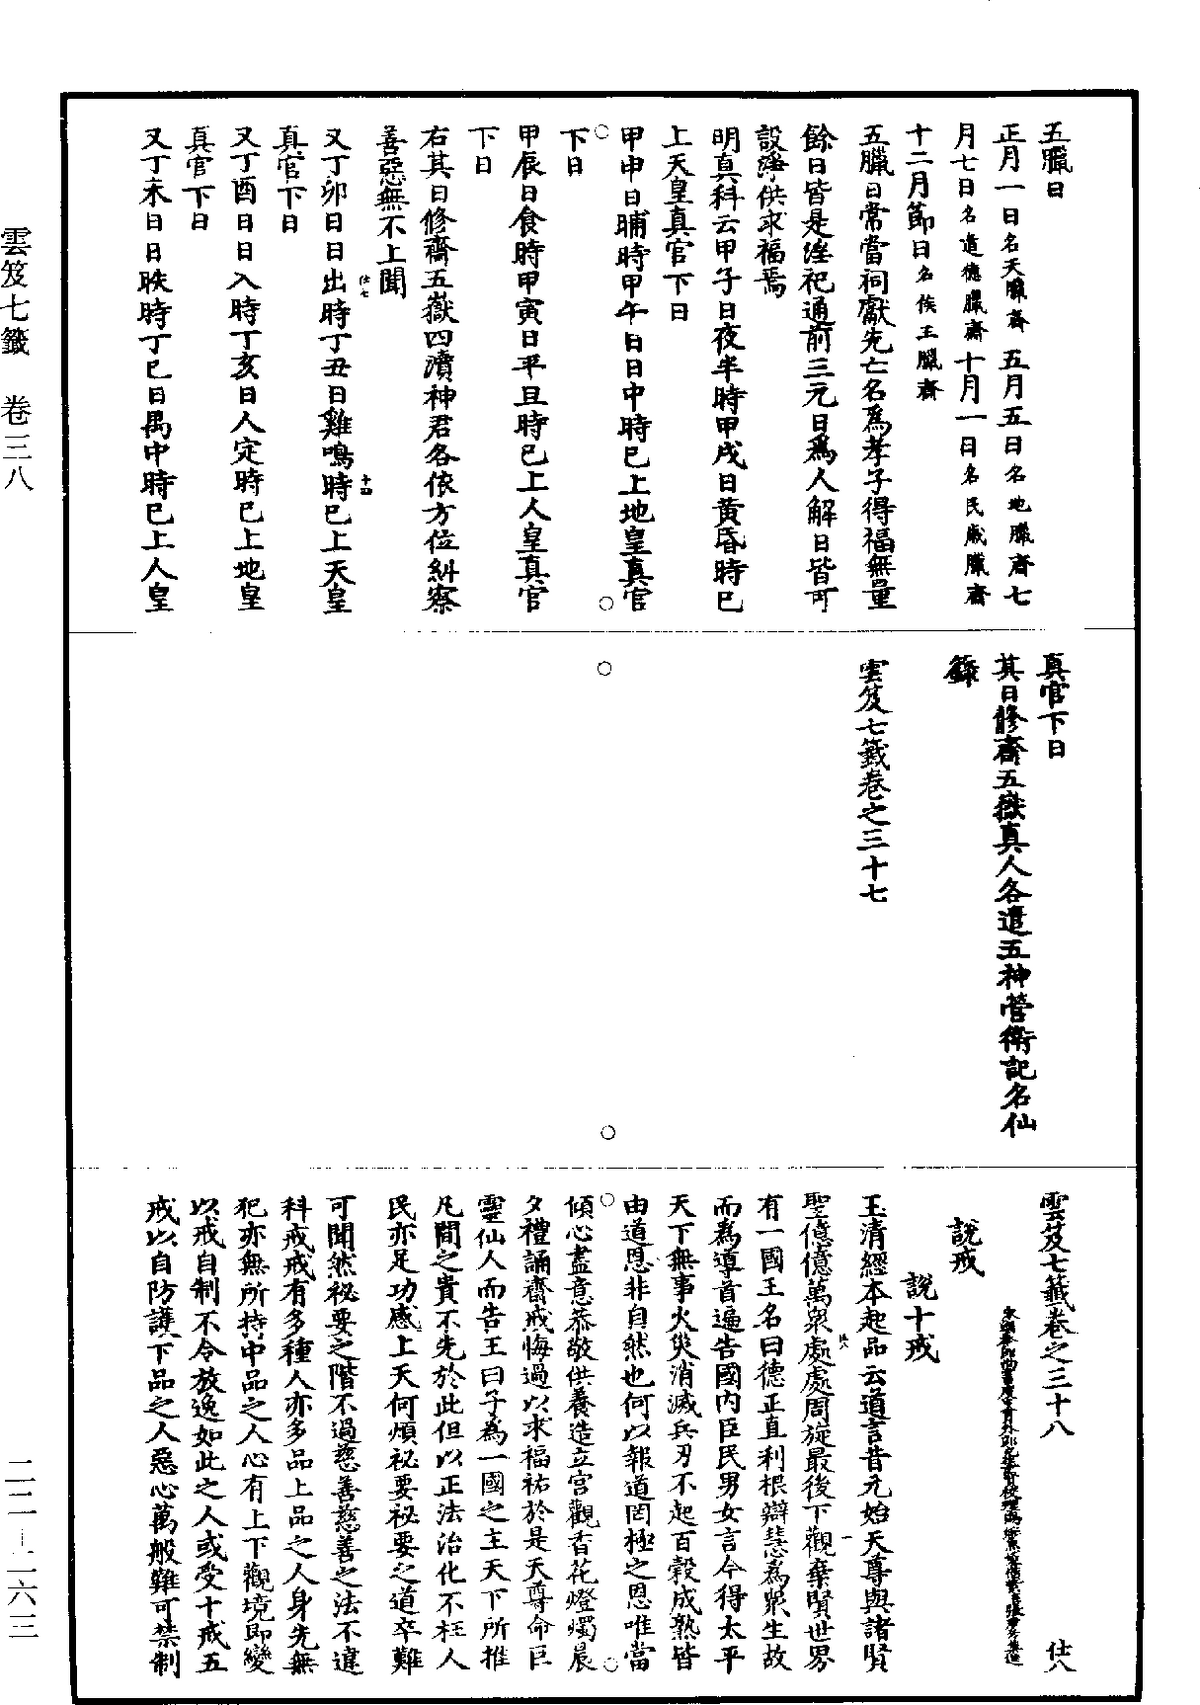 五臘日
正月一日名天臘齋五月五日名地臘齋七
月七日名道德臘齋十月一日名民歲臘齋
十二月節日名侯王臘齋
五臘日常當祠獻先亡名爲孝子得福無量
餘日皆是淫祀通前三元日爲人解日皆可
設淨供求福焉
明真科云甲子日夜半時甲戌日黃昏時巳
上天皇真官下日
甲申日晡時甲午日日中時巳上地皇真官
下日
甲辰日食時甲寅日平旦時巳上人皇真官
下日
右其日修齋五嶽四瀆神君各依方位糾察
善惡無不上聞
仕七
十四
又丁卯日日出時丁丑日雞鳴時巳上天皇
真官下日
又丁酉日日入時丁亥日人定時巳上地皇
真官下日
又丁未日日昳時丁巳日禺中時巳上人皇
真官下日
其日修齋五嶽真人各遣五神營衛記名仙
籙
雲笈七籤卷之三十七
雲笈七籤卷之三十八 仕八
說戒
說十戒
玉清經本起品云道言昔元始天尊與諸賢
仕八
一
聖億億萬衆處處周旋最後下觀棄賢世界
有一國王名曰德正直利根辯慧爲衆生故
而爲導首遍告國內臣民男女言今得太平
天下無事火災消滅兵刃不起百穀成熟皆
由道恩非自然也何以報道罔極之恩唯當
傾心盡意恭敬供養造立宮觀香花燈燭晨
夕禮誦齋戒悔過以求福祐於是天尊命巨
靈仙人而告王曰子為一國之主天下所推
凡間之貴不先於此但以正法治化不枉人
民亦足功感上天何煩祕要祕要之道卒難
可聞然祕要之階不過慈善慈善之法不違
科戒戒有多種人亦多品上品之人身先無
犯亦無所持中品之人心有上下觀境即變
以戒自制不令放逸如此之人或受十戒五
戒以自防護下品之人惡心萬般難可禁制
雲笈七籤 卷三八
二二—二六三